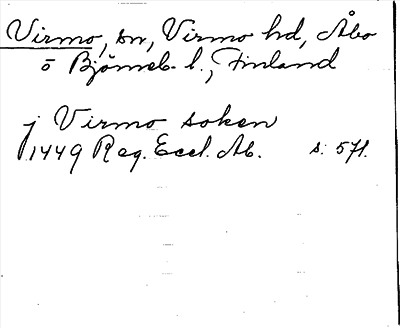 Virmo, sn, Virmo hd, Åbo
o Björneb. l., Finland
j Virmo soken
1449 Reg. Eccl. Ab. s. 571.